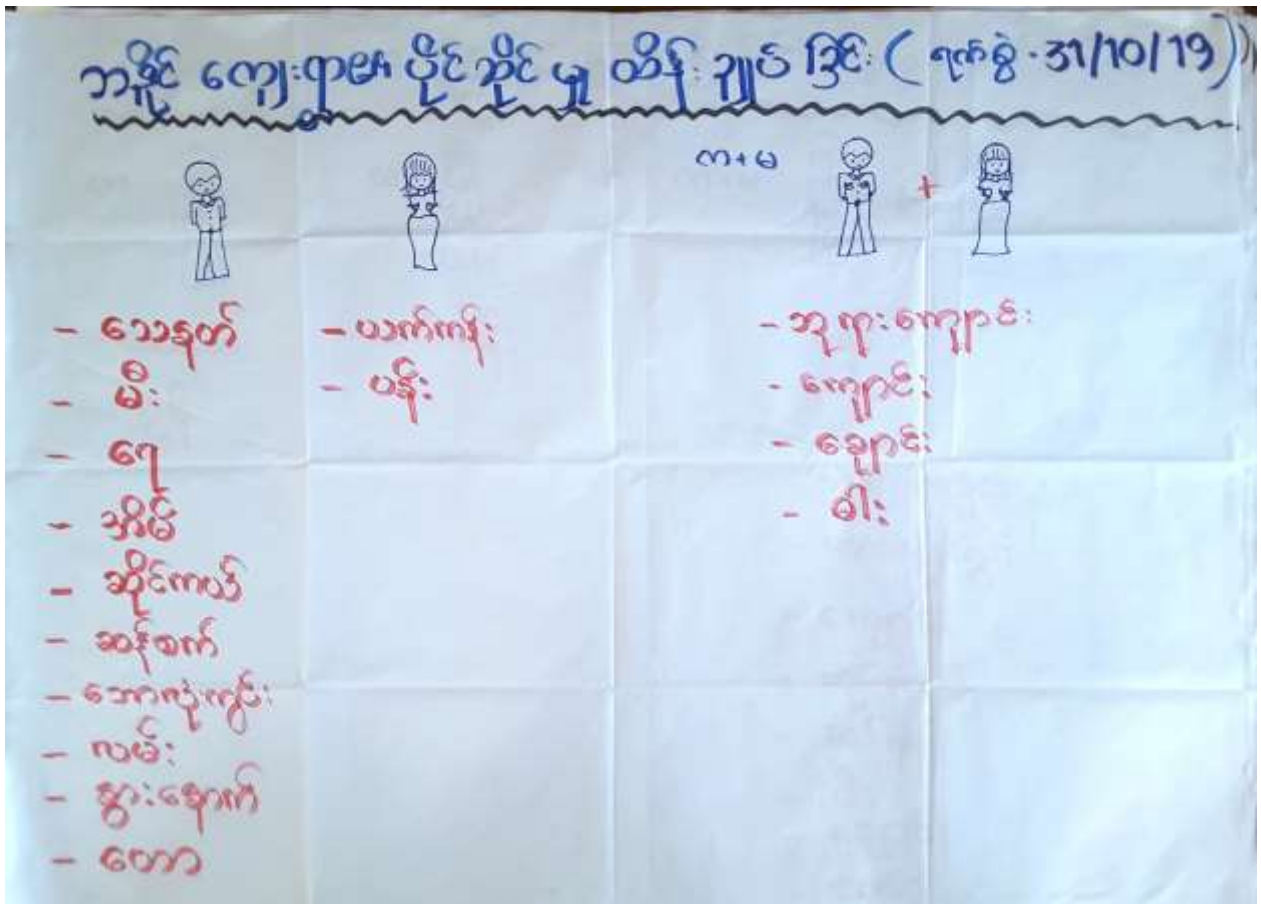 ဘနှိုင် ကျေးရွာ၏ ပိုင်ဆိုင်မှု ထိန်းချုပ်ခြင်း (ရက်စွဲ - 31/10/19)
က + မ
+
- သေနတ်
- မီး
- ရေ
- အိမ်
- ဆိုင်ကယ်
- ဆန်စက်
- ဘောလုံးကွင်း
- လမ်း
- နွားနောက်
- တော
- ယက်ကန်း
- ပန်း
- ဘုရားကျောင်း
- ကျောင်း
- ချောင်း
- ဓါး